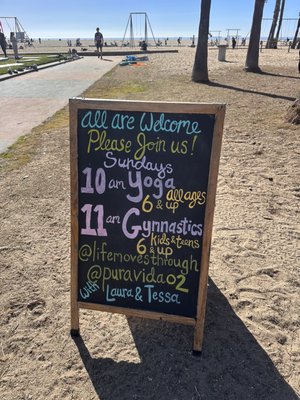 All are Welcome
Please Join us!
Sundays
10 am Yoga
All ages
6 & up
11 am Gymnastics
Kids & teens
6 & up
@lifemovesthrough
@puravida02
with Laura & Tessa